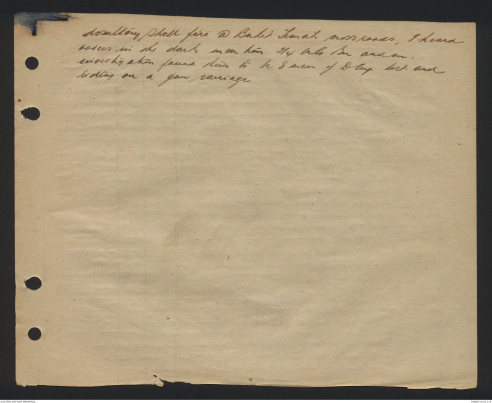 desultory shell fire @ Bakri Sumah cross roads, I heard
voices in the dark mention the Bn and on
investigation found them to be 8 men of D Coy lost and
riding on a gun carriage